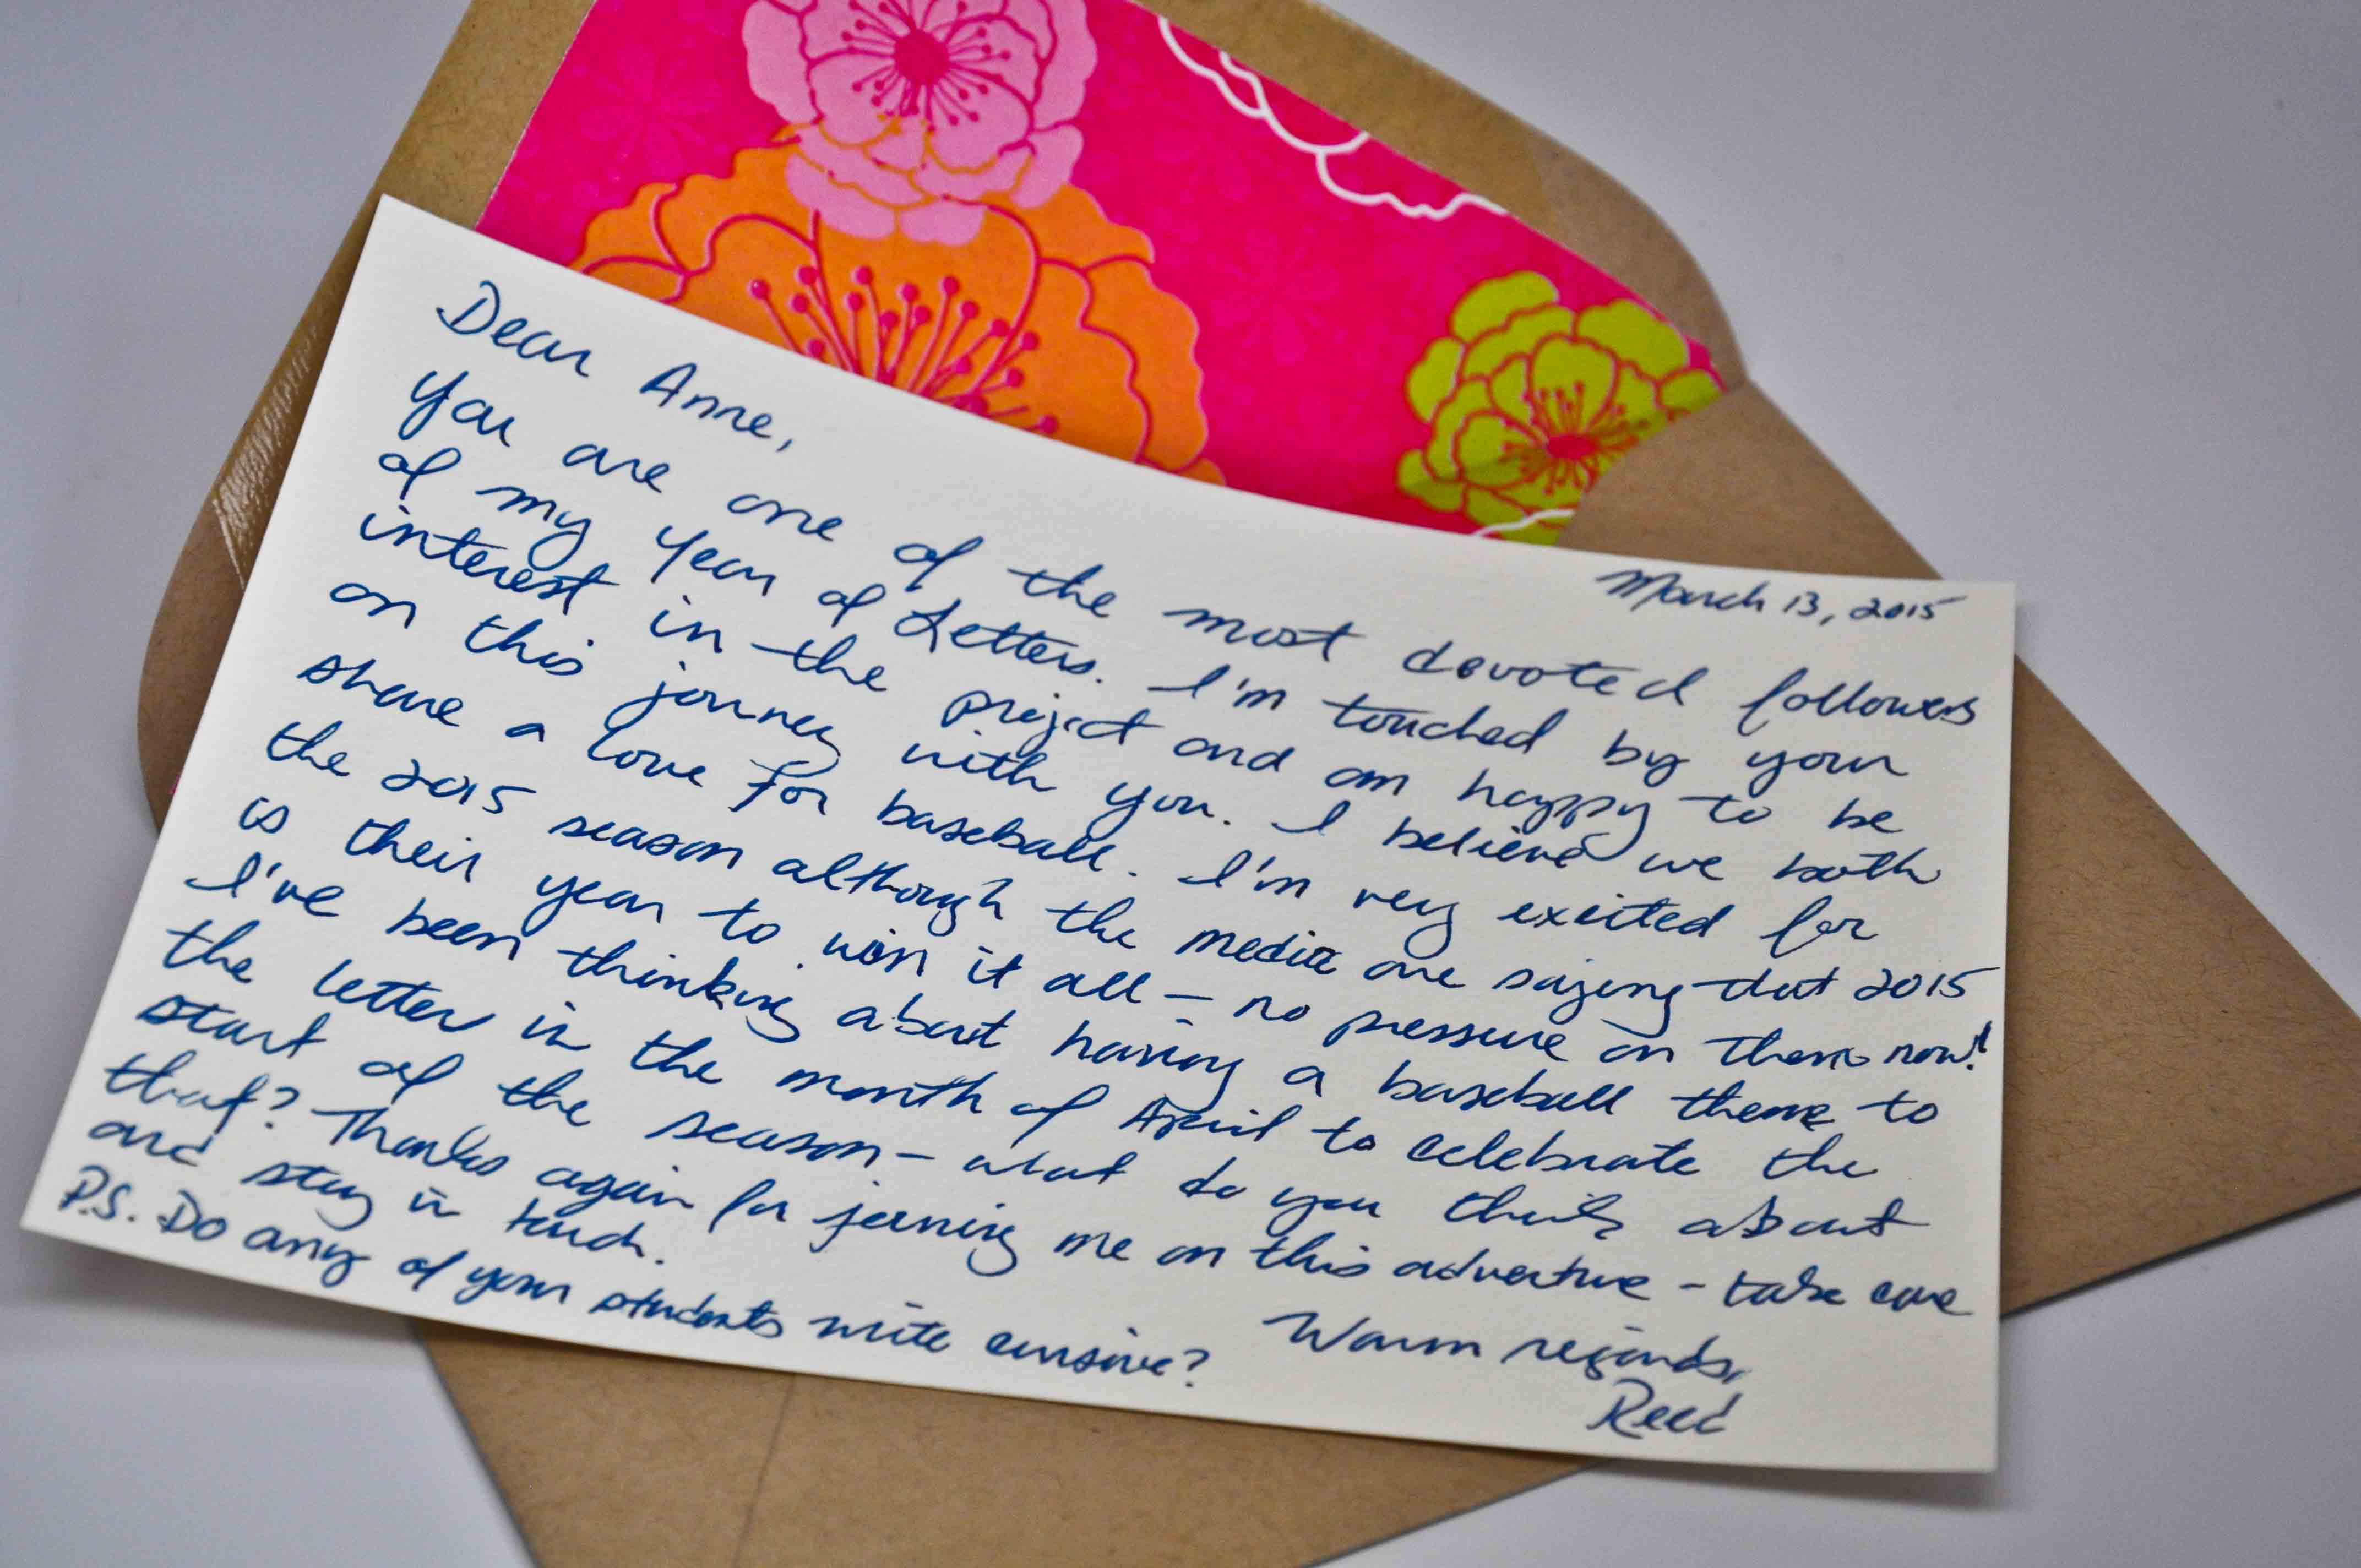 March 13, 2015
Dear Anne,
You are one of the most devoted followers
of my Year of Letters. I'm touched by your
interest in the project and am happy to be
on this journey with you. I believe we both
share a love for baseball. I'm very excited for
the 2015 season although the media are saying that 2015
is their year to win it all – no pressure on them now!
I've been thinking about having a baseball theme to
the letter in the month of April to celebrate the
start of the season – what do you think about
that? Thanks again for joining me on this adventure – take care
and stay in touch.
Warm regards,
Reed
P.S. Do any of your students write cursive?